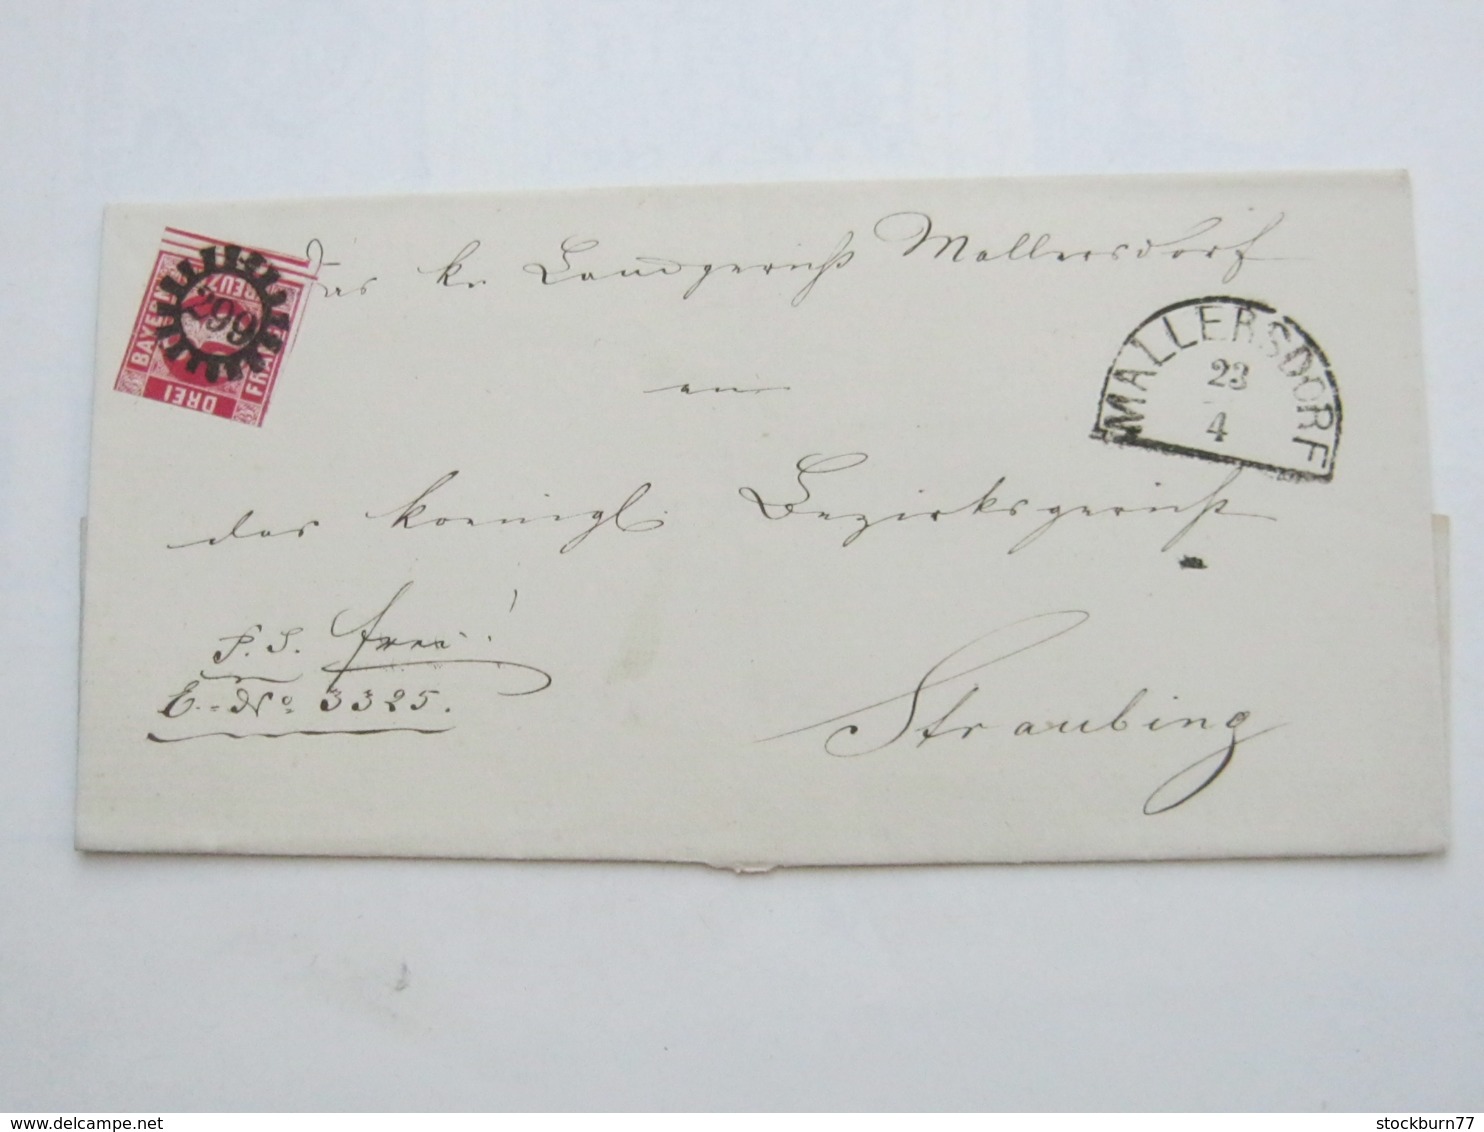 Das kr. Landgericht Mallersdorf
an
das koenigl. Bezirksgericht
Straubing
P. S. frei!
E.-No. 3325.
MALLERSDORF
23
4
BAYERN
KREUZER
FRANCO
DREI
299
stockburn77